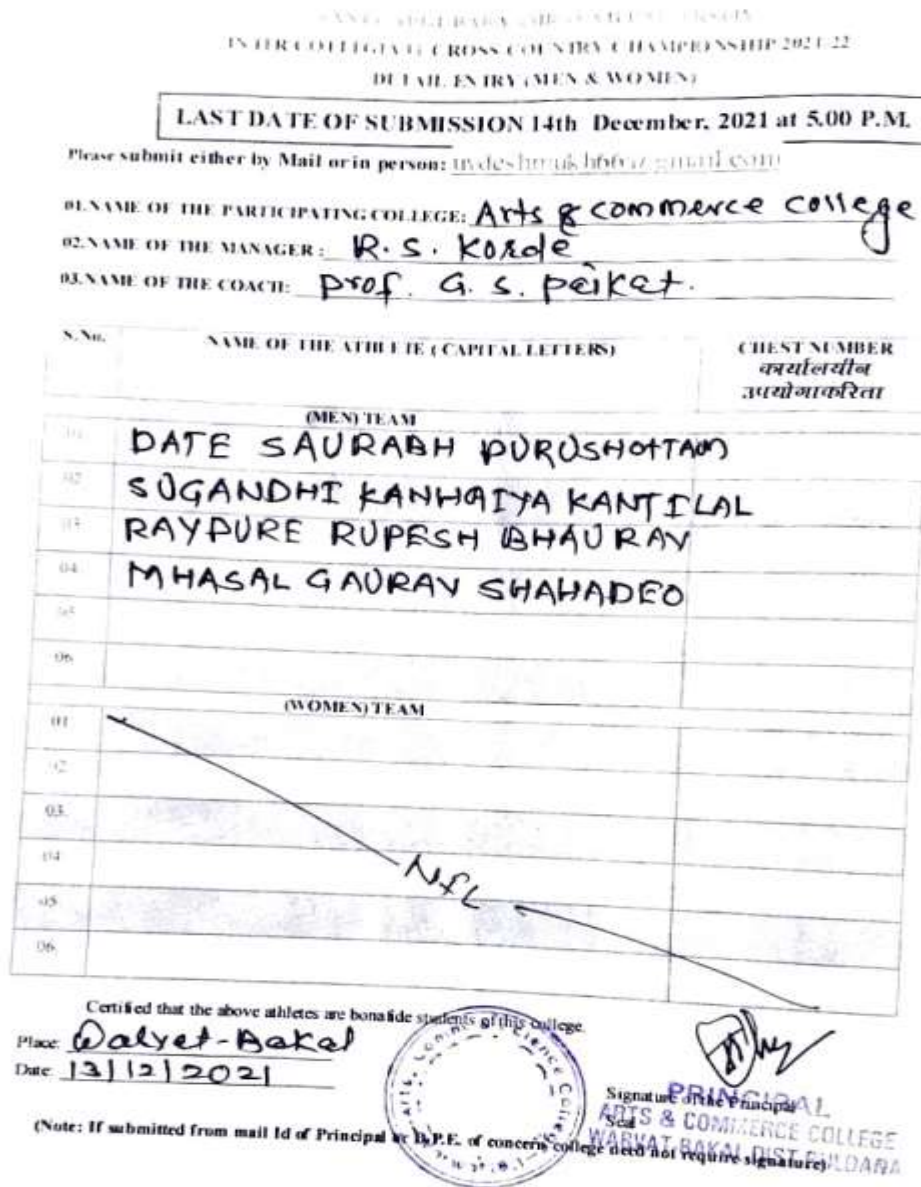 INTER COLLEGIATE CROSS COUNTRY CHAMPIONSHIP 2021-22
DETAIL ENTRY (MEN & WOMEN)
LAST DATE OF SUBMISSION 14th December, 2021 at 5.00 P.M.
Please submit either by Mail or in person:
01.NAME OF THE PARTICIPATING COLLEGE: Arts & commerce college
02.NAME OF THE MANAGER : R. S. Korde
03.NAME OF THE COACH: prof. G. S.
S.No. NAME OF THE ATHLETE ( CAPITAL LETTERS) CHEST NUMBER
कार्यालयीन
उपयोगाकरिता
(MEN) TEAM
01 DATE SAURABH PURUSHOTTAM
02 SUGANDHI KANHAIYA KANTILAL
03 RAYPURE RUPESH BHAURAV
04 MHASAL GAURAV SHAHADEO
05
06
(WOMEN) TEAM
01
02
03
04 NIL
05
06
Certified that the above athletes are bonafide students of this college.
Place: -Bakal
Date: 13/12/2021
Signature of the Principal
Seal
PRINCIPAL
ARTS & COMMERCE COLLEGE
WARVAT BAKAL DIST BULDANA
(Note: If submitted from mail Id of Principal or D.P.E. of concern college need not require signature)